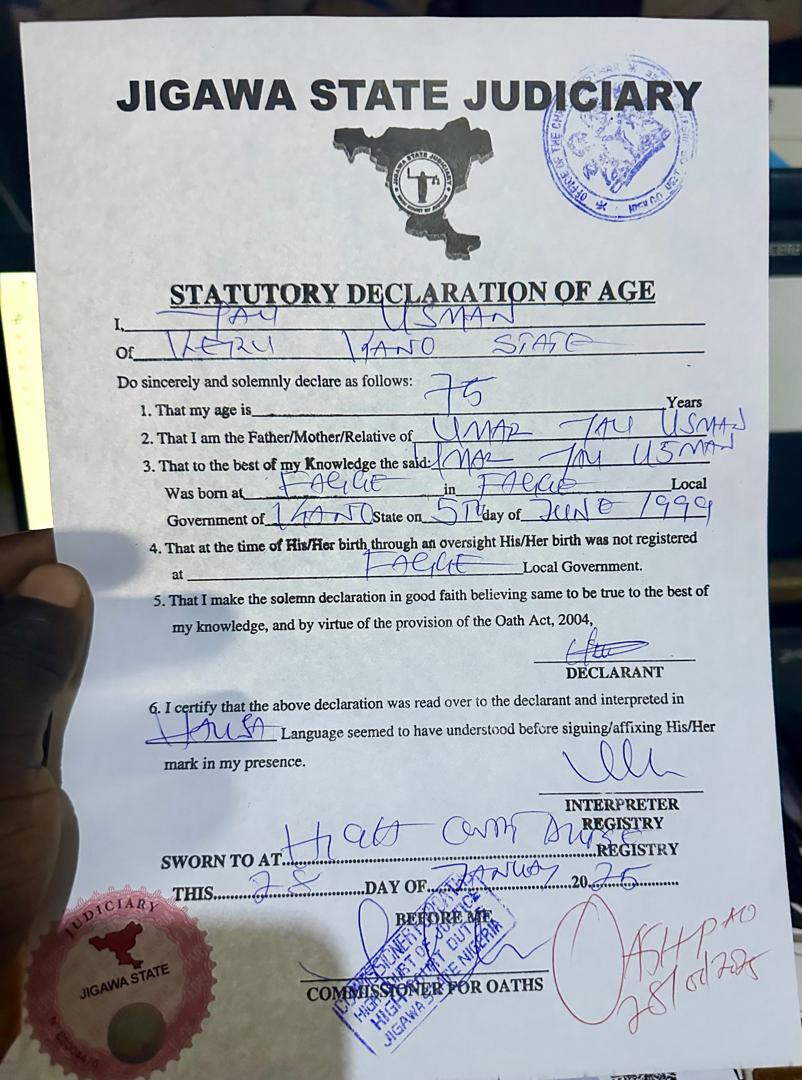 JIGAWA STATE JUDICIARY
OFFICE OF THE
JIGAWA STATE JUDICIARY
STATUTORY DECLARATION OF AGE
I, JAU USMAN
Of KANO STATE
Do sincerely and solemnly declare as follows:
1. That my age is 75 Years
2. That I am the Father/Mother/Relative of UMAR JAU USMAN
3. That to the best of my Knowledge the said: UMAR JAU USMAN
Was born at FAGGE in FAGGE Local
Government of KANO State on 5th day of JUNE 1999
4. That at the time of His/Her birth through an oversight His/Her birth was not registered
at FAGGE Local Government.
5. That I make the solemn declaration in good faith believing same to be true to the best of
my knowledge, and by virtue of the provision of the Oath Act, 2004,
DECLARANT
6. I certify that the above declaration was read over to the declarant and interpreted in
HAUSA Language seemed to have understood before siguing/affixing His/Her
mark in my presence.
INTERPRETER
REGISTRY
SWORN TO AT High Court Dutse REGISTRY
THIS 28 DAY OF January 2025
BEFORE ME
COMMISSIONER FOR OATHS
HIGH COURT OF JUSTICE
JIGAWA STATE NIGERIA
CASH PAID
JUDICIARY
JIGAWA STATE